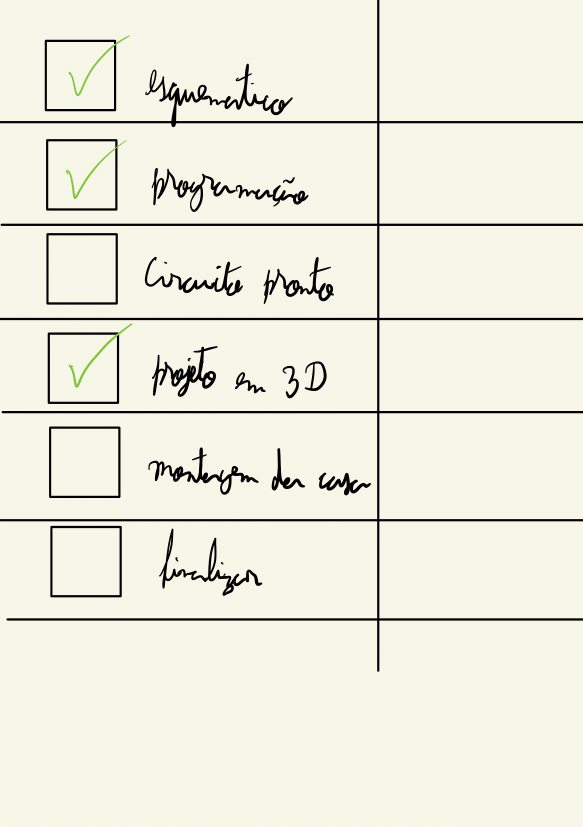 esquematico
programação
Circuito pronto
projeto em 3D
montagem da casa
finalizar